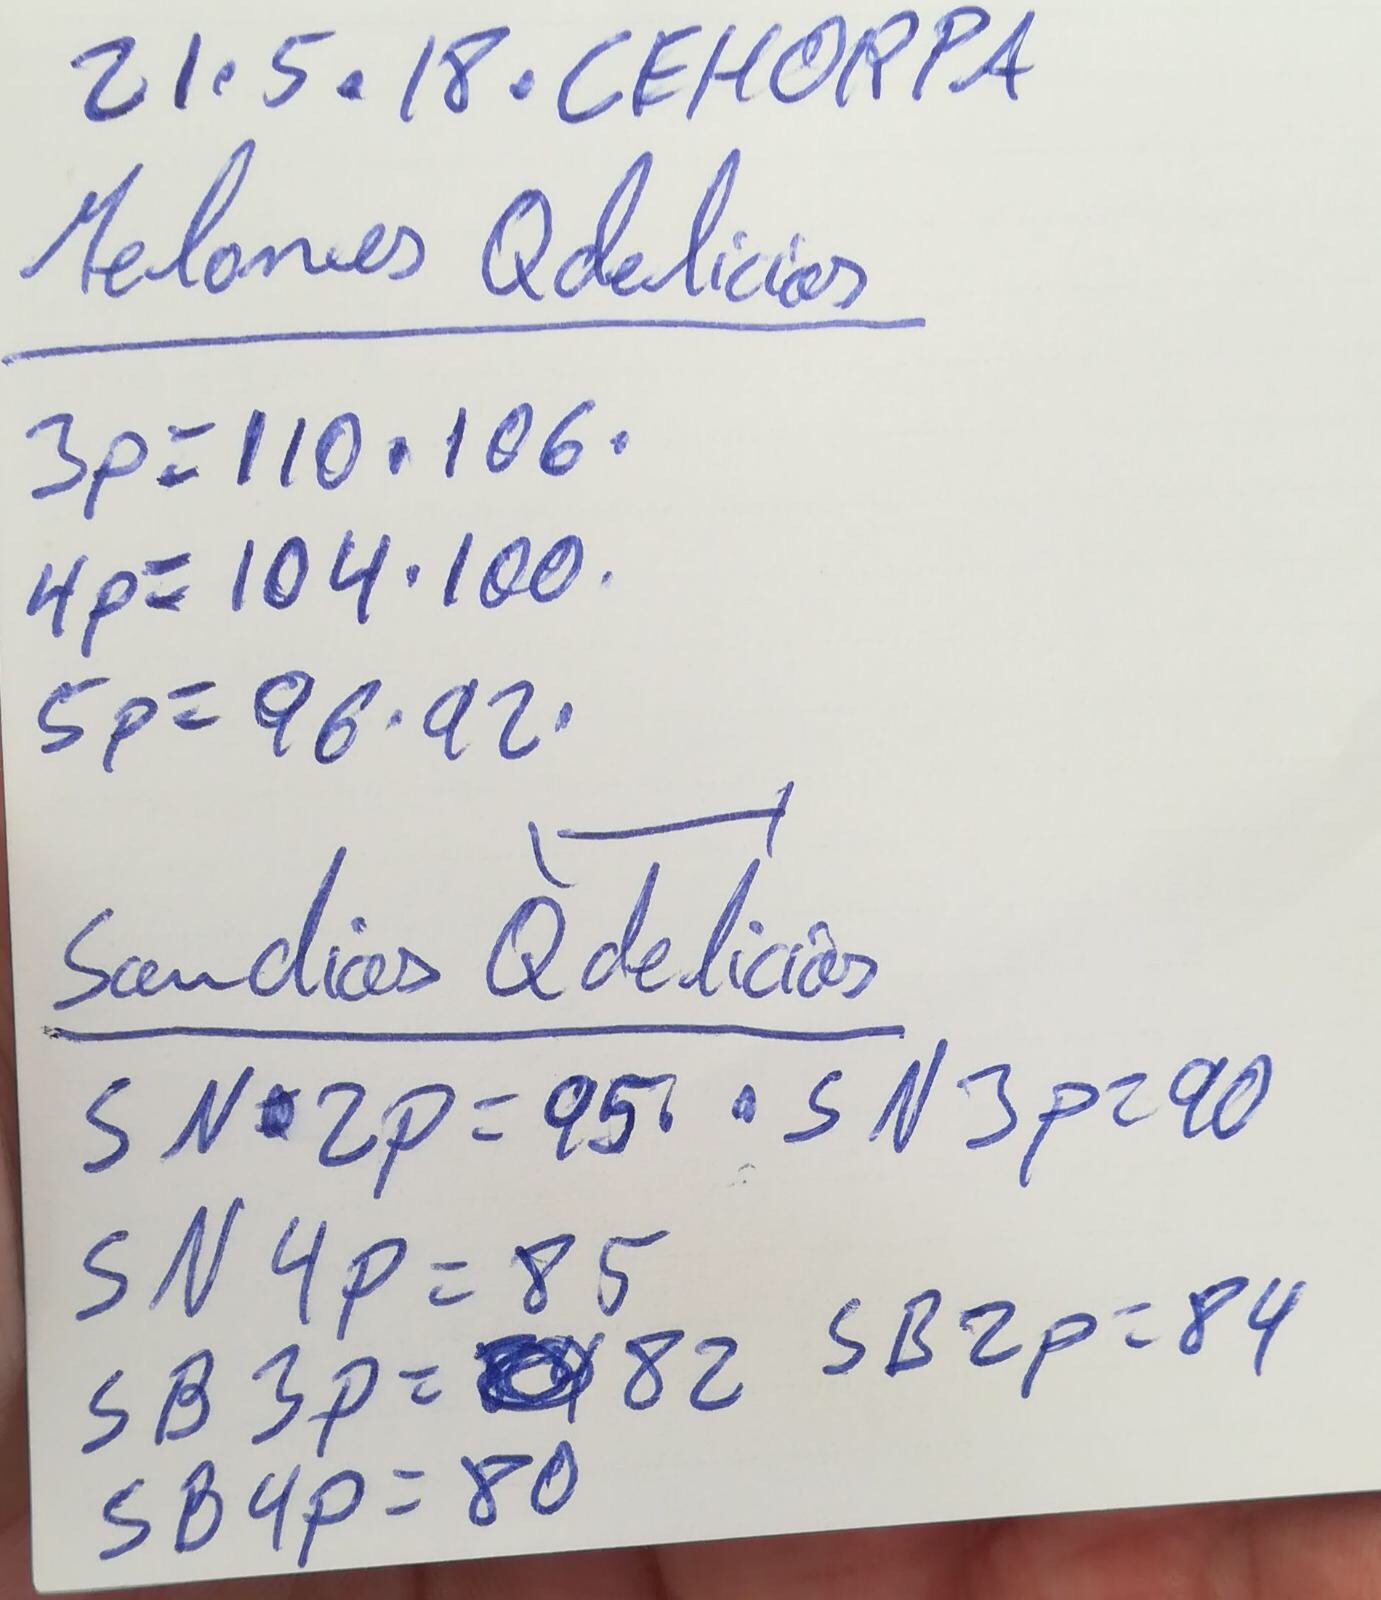 21.5.18.CEHORPA
Melones Qdelicias
3p=110.106.
4p=104.100.
5p=96.92.
Sandias Qdelicias
SN.2p=95. .SN3p=90
SN4p=85
SB2p=84
SB3p=82
SB4p=80